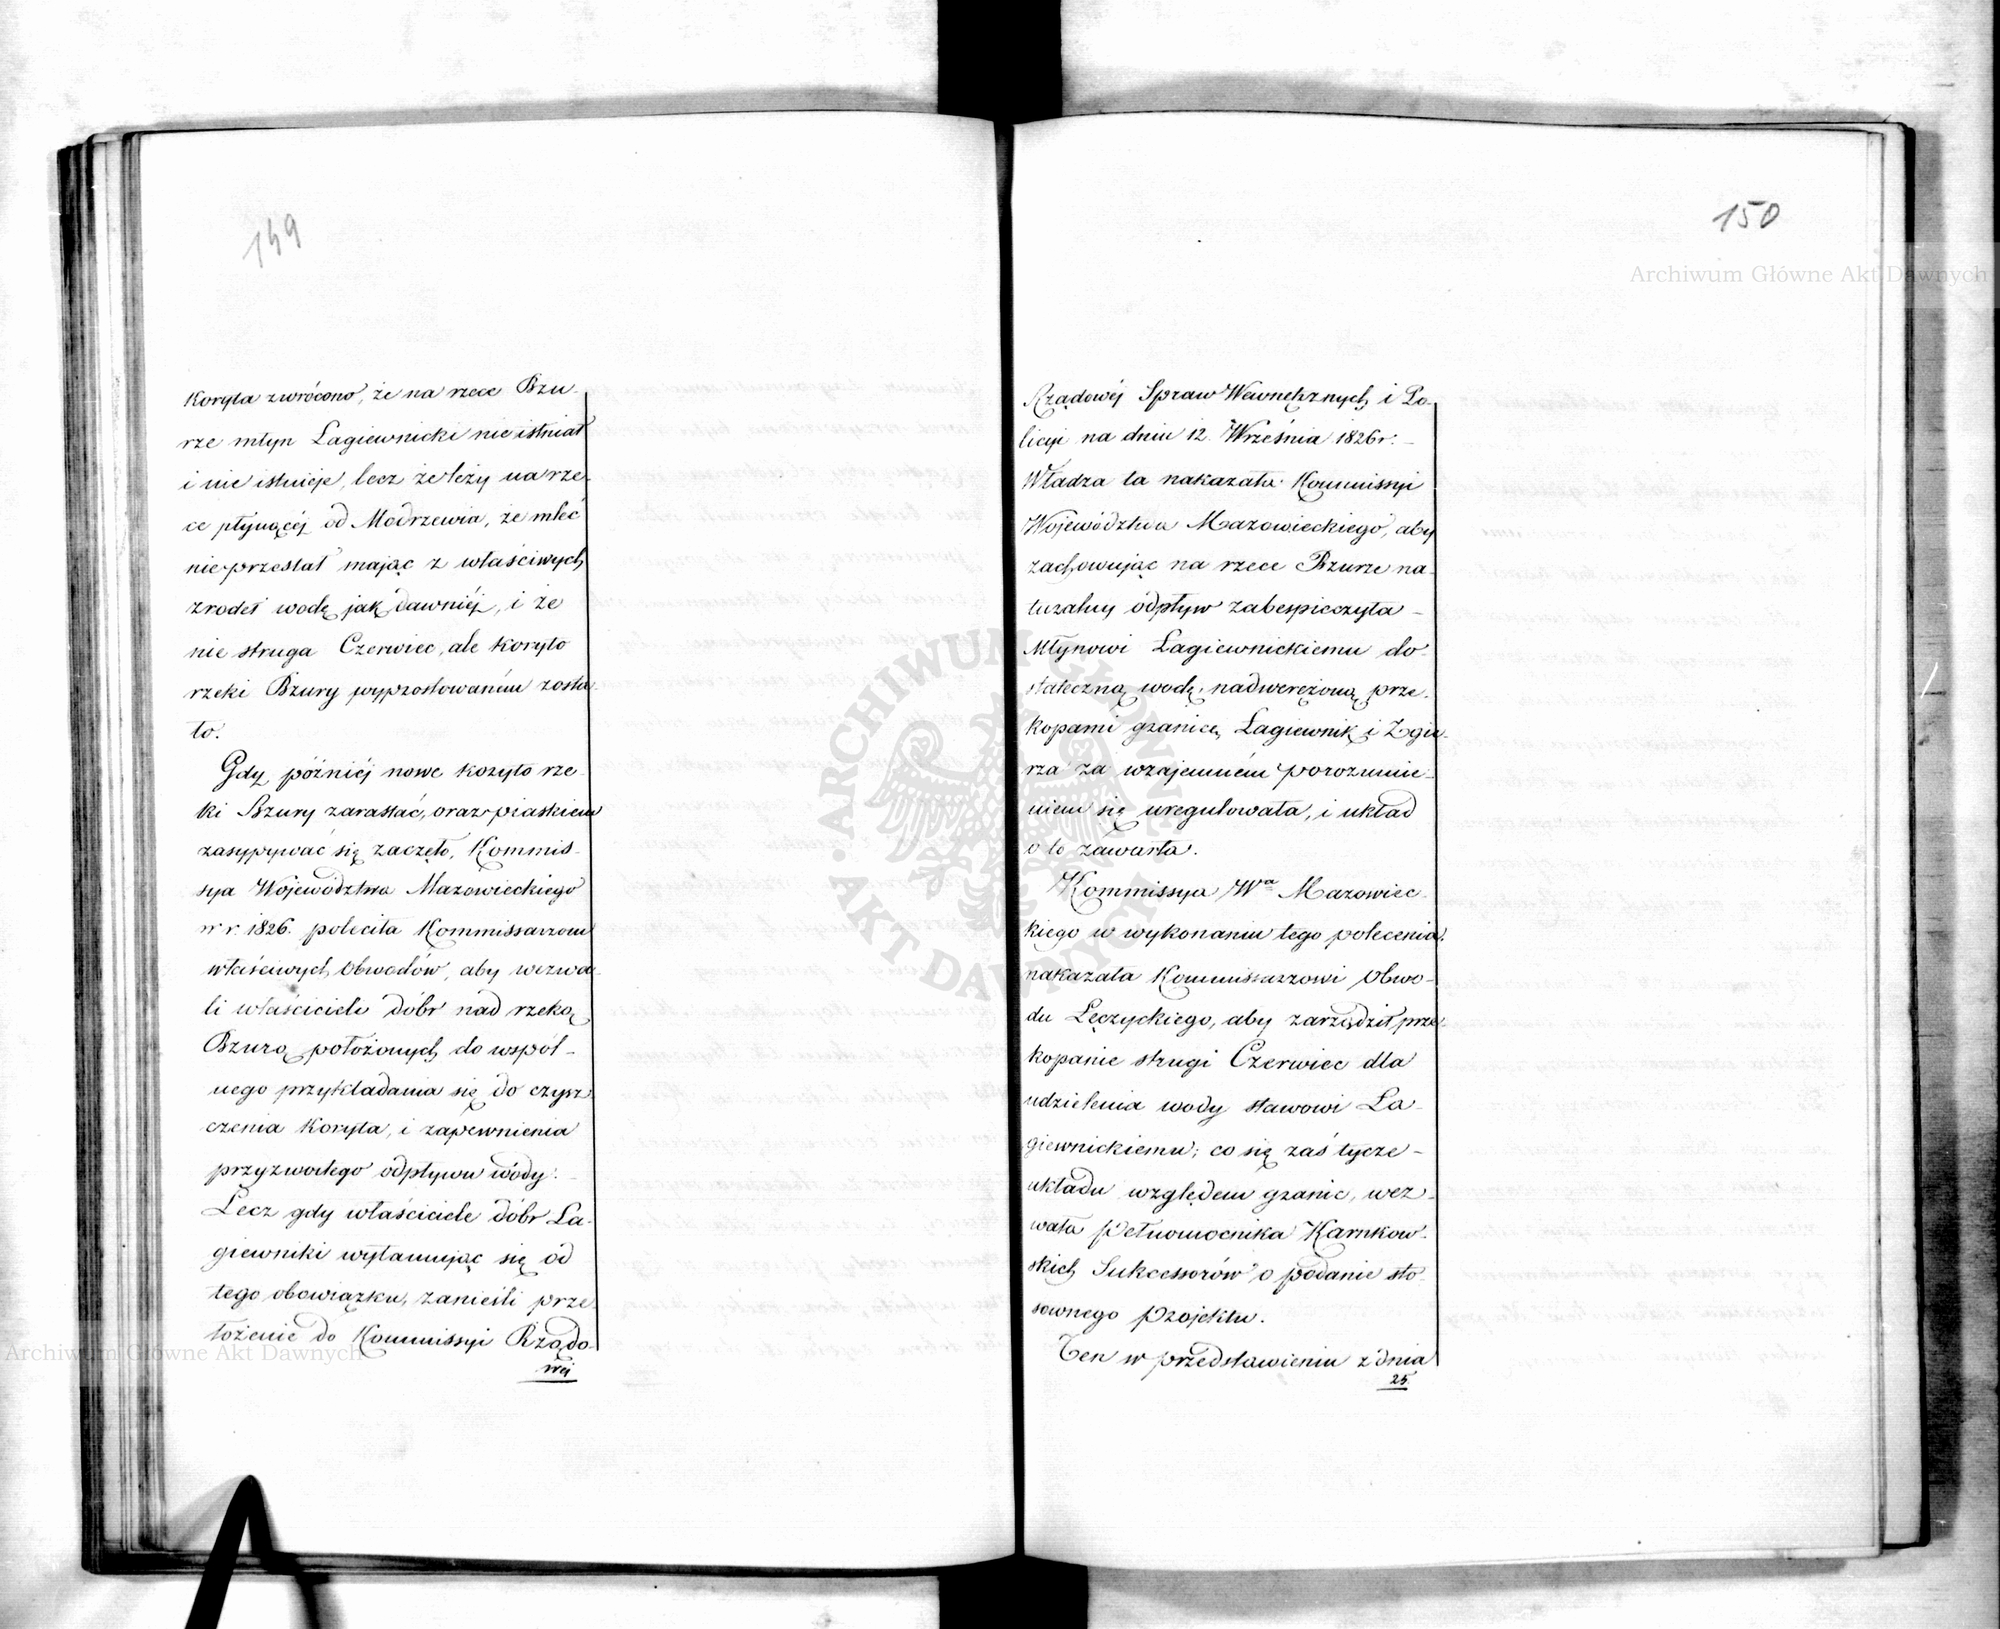 149
koryta zwrócono, że na rzece Bzu-
rze młyn Łagiewnicki nie istniał
i nie istnieje, lecz że leży na rze-
ce płynącéj od Modrzewia, że mleć
nie przestał mając z właściwych
zrodeł wodę jak dawniéj, i że
nie struga Czerwiec, ale koryto
rzeki Bzury wyprostowaném zosta-
ło.
Gdy późniéj nowe koryto rze-
ki Bzury zarastać, oraz piaskiem
zasypywać się zaczęło, Kommis-
sya Województwa Mazowieckiego
w r. 1826. poleciła Kommissarzom
właściwych Obwodów, aby wezwa-
li właścicieli dóbr nad rzeką
Bzurą położonych do wspól-
nego przykładania się do czysz-
czenia koryta, i zapewnienia
przyzwoitego odpływu wody. –
Lecz gdy właściciele dóbr Ła-
giewniki wyłamując się od
tego obowiązku, zanieśli prze-
łożenie do Kommissyi Rządo-
wéj
150
Rządowéj Spraw Wewnętrznych i Po-
licyi na dniu 12. Września 1826 r. –
Władza ta nakazała Kommissyi
Województwa Mazowieckiego, aby
zachowując na rzece Bzurze na-
turalny odpływ zabespieczyła –
Młynowi Łagiewnickiemu do-
stateczną wodę, nadwerężoną prze-
kopami granicę Łagiewnik i Zgie-
rza za wzajemném porozumie-
niem się uregulowała, i układ
o to zawarła.
Kommissya Wa Mazowiec-
kiego w wykonaniu tego polecenia,
nakazała Kommissarzowi Obwo-
du Łęczyckiego, aby zarządził prze-
kopanie strugi Czerwiec dla
udzielenia wody stawowi Ła-
giewnickiemu; co się zaś tycze –
układu względem granic, wez-
wała Pełnomocnika Karnkow-
skich Sukcessorów o podanie sto-
sownego projektu.
Ten w przedstawieniu z dnia
25.
Archiwum Główne Akt Dawnych
ARCHIWUM GŁÓWNE · AKT DAWNYCH
Archiwum Główne Akt Dawnych